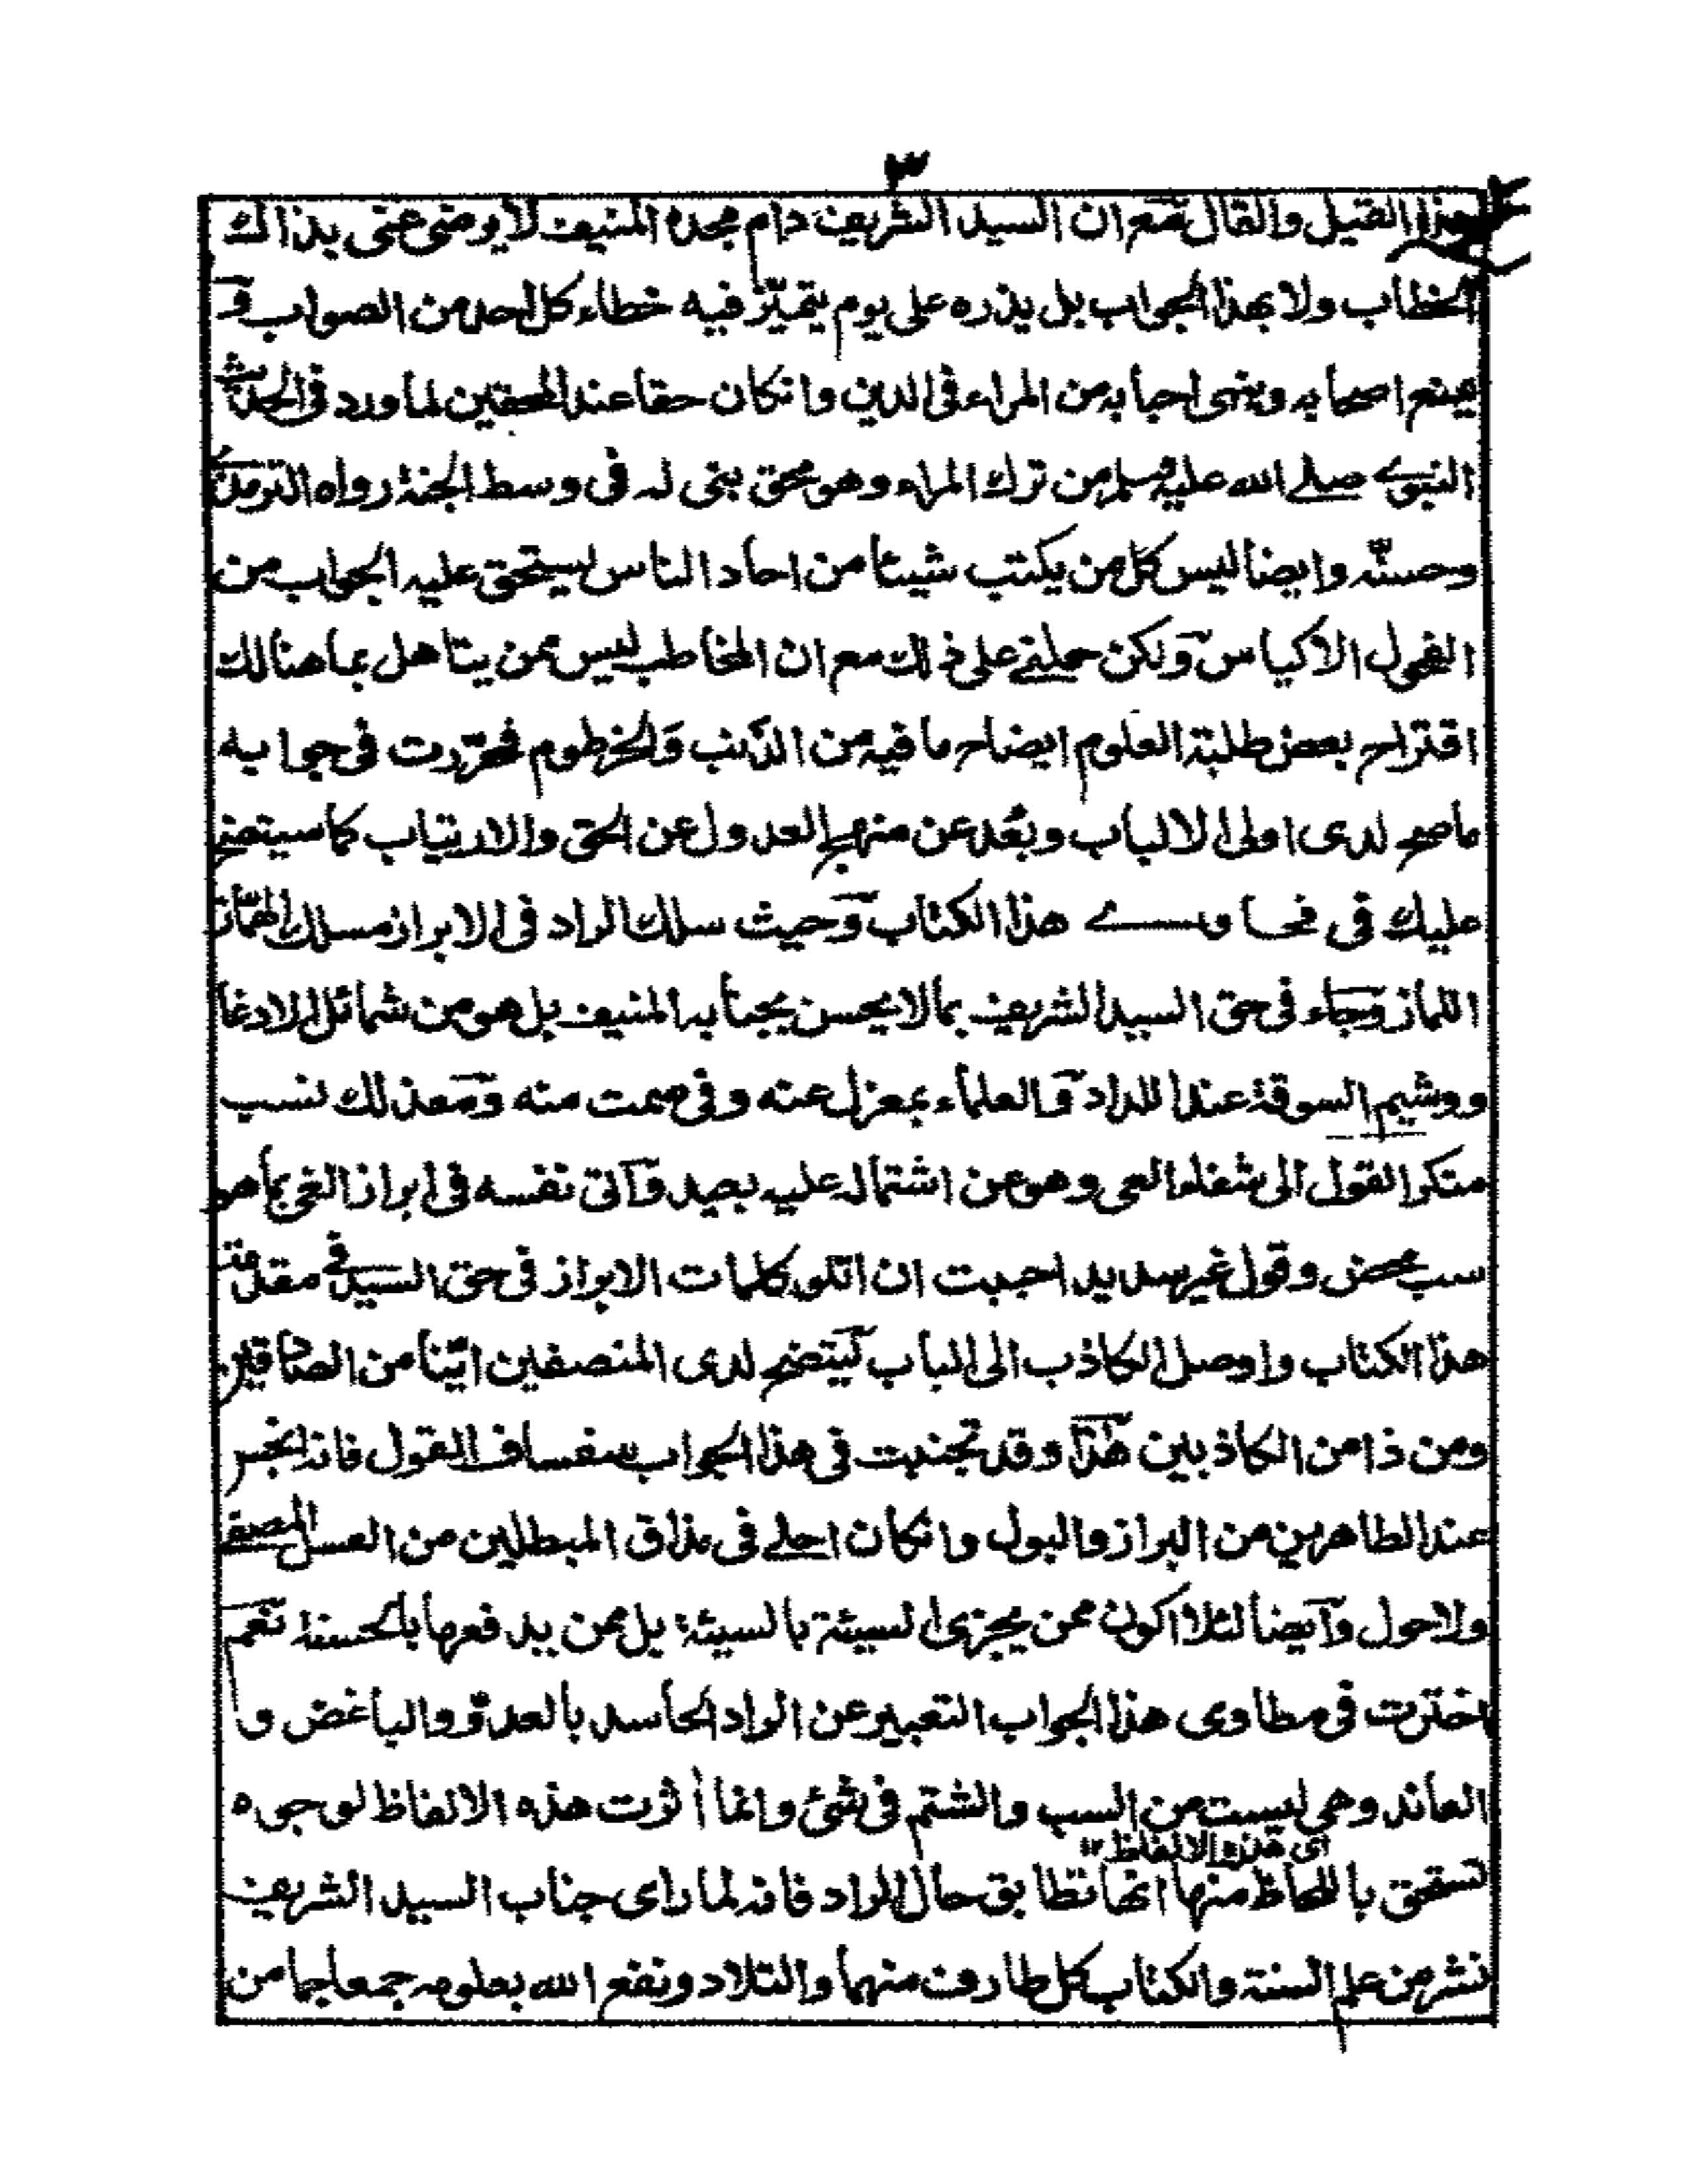 ٣
القيل والقال مع ان السيد الشريف دام مجده المنيف لا يرضى عنى بذالك
الخطاب ولا بهذا الجواب بل يذره على يوم يتميّز فيه خطاء كل احد من الصواب و
يمنع اصحابه وينهى احبابه من المراء فى الدين وانكان حقا عند المحققين لما ورد فى الحديث
النبوى صلے الله عليه وسلم من ترك المراء وهو محق بنى له فى وسط الجنة رواه الترمذى
وحسنّه وايضا ليس كل من يكتب شيئا من احاد الناس يستحق عليه الجواب من
الفحول الاكياس ولكن حملنے على ذالك مع ان المخاطب ليس ممن يتاهل بما هنالك
اقتراح بعض طلبة العلوم ايضاح ما فيه من الذنب والخرطوم فحرّرت فى جوابه
ما صح لدى اولى الالباب وبعُد عن منهج العدول عن الحق والارتياب كما سيتضح
عليك فى فحاوے هذا الكتاب وحيث سلك الراد فى الابراز مسلك الهمّاز
اللماز وجاء فى حق السيد الشريف بما لا يحسن بجنابه المنيف بل هو من شمائل
وشيم السوقة عند اللداد والعلماء بمعزل عنه وفى صمت منه ومع ذلك نسب
منكر القول الى شفاء العى وهو عن اشتماله عليه بعيد وآتى نفسه فى ابراز الغى بما هو
سب محض وقول غير سديد احببت ان اتلو كلمات الابراز فى حق السيد فى مقدمة
هذا الكتاب واوصل الكاذب الى الباب ليتضح لدى المنصفين ايّنا من الصادقين
ومن ذا من الكاذبين هذا وقد تجنبت فى هذا الجواب سفساف القول فانه انجس
عند الطاهرين من البراز والبول وانكان احلے فى مذاق المبطلين من العسل المصفے
ولا حول وآيضا لئلا اكون ممن يجزى السيئة بالسيئة بل ممن يدفعها بالحسنة نعم
اخترت فى مطاوى هذا الجواب التعبير عن الراد الحاسد بالعدوّ والباغض و
العاند وهى ليست من السب والشتم فى شئ وانما أثرت هذه الالفاظ لوجوه
اى هذه الالفاظ ١٢
تستحق باللحاظ منها انها تطابق حال الراد فانه لما راى جناب السيد الشريف
نشر من علم السنة والكتاب كل طارف منهما والتلاد ونفع الله بعلومه جمعا جما من